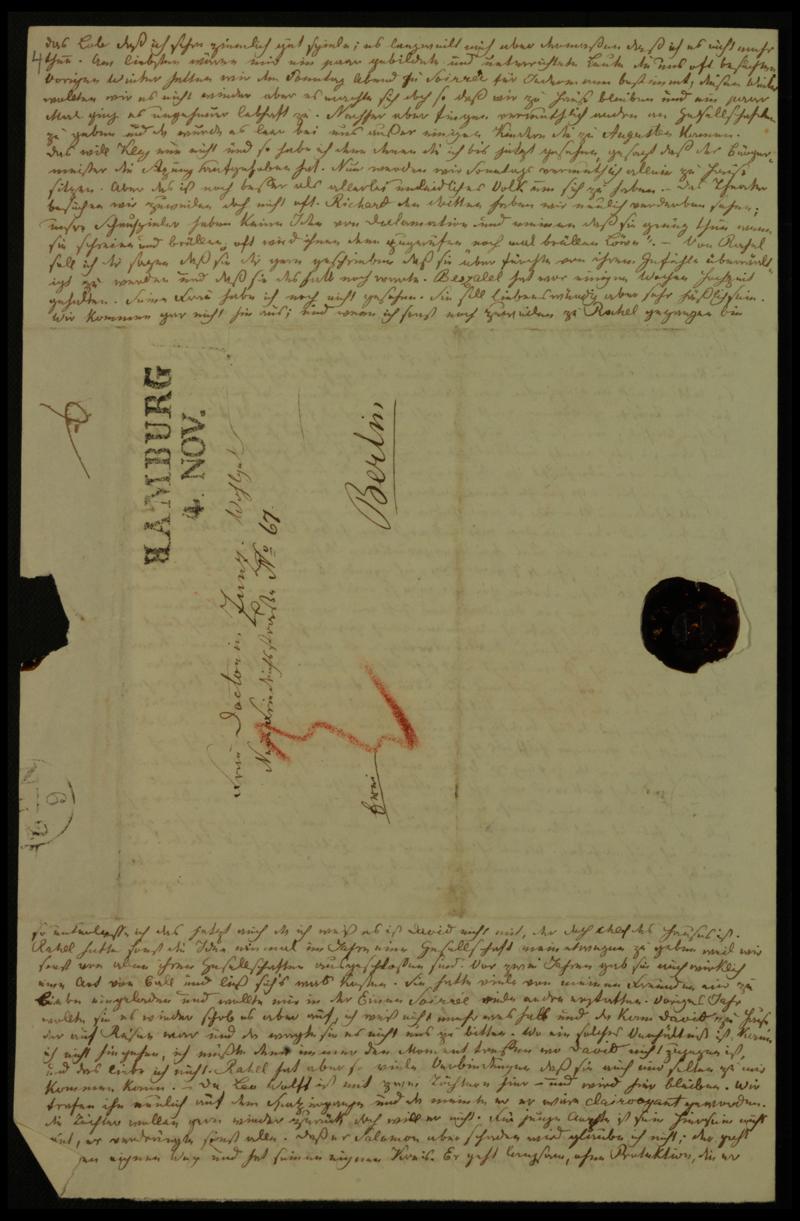 4
das Lob daß ich schon ziemlich gut spiele; es langweilt mich aber dermaßen daß ich es nicht mehr
thue. Am liebsten wären mir ein paar gebildete und unterrichtete Leute die uns oft besuchten
Vorigen Winter hatten wir den Sonntag Abend zu Soireé für Jedermann bestimmt, diesen Winter
wollten wir es nicht wieder aber es machte sich doch so daß wir zu Haus bleiben und ein paar
Mal ging es ungeheuer lebhaft zu. Nachher aber fingen vermuthlich andere an Gesellschaften
zu geben und da wurde es leer bei uns außer einigen Kindern die zu Augusten kamen.
Das will Kley nun nicht und so habe ich denn denen die ich bis jetzt gesehen gesagt daß der Bürger-
meister die Sitzung aufgehoben hat. Nun werden wir Sonntags vermuthlich allein zu Hause
sitzen. Aber das ist noch besser als allerlei unleidliches Volk um sich zu haben. – Das Theater
besuchen wir zuweilen doch nicht oft. Richard den dritten haben wir neulich verderben sehen;
unsre Schauspieler haben keine Idee von Declamation und meinen daß sie genug thun wenn
sie schreien und brüllen, oft wird ihnen denn zugerufen noch mal brüllen Löwe". – Von Rahel
soll ich dir sagen daß sie dir gern geschrieben daß sie aber fürchte von ihrem Gefühle überwält-
igt zu werden und daß sie deshalb noch warte. Bezalel hat vor einigen Wochen Hochzeit
gehalten. Seine Frau habe ich noch nicht gesehen. Sie soll liebenswürdig aber sehr häßlich sein.
Wir kommen gar nicht hin aus; und wenn ich sonst noch zuweilen zu Rahel gegangen bin
HAMBURG
4. NOV.
Frau Doctorin Zunz. Wohlgeb
Neue Friedrichsstraße No 67
Berlin
frei
6
so unterlasse ich das jetzt auch da ich weiß es ist David nicht mit, der doch Chef des Hauses ist.
Rahel hatte sonst die Idee einmal im Jahre eine Gesellschaft meinetwegen zu geben weil wir
sonst von allen ihren Gesellschaften ausgeschlossen sind. Vor zwei Jahren gab sie auch wirklich
eine Art von Ball und ließ sich's was kosten. Sie hatte viele von meinen Freunden mir zu
Liebe eingeladen und wollte mir in der Einen Soireé viele andre erstatten. Voriges Jahr
wollte sie es wieder schob es aber auf, ich weiß nicht mehr weshalb und da kam David zu Haus
der auf Reisen war und da wagte sie es nicht uns zu bitten. Wo ein solches Verhältniß ist, kann
ich nicht hingehen, ich müßte denn immer den Moment treffen wo David nicht zugegen ist,
und das liebe ich nicht. Rahel hat aber so viele Verbindungen daß sie auch nur selten zu mir
kommen kann. – Da Leo Wolff ist mit zwei Töchtern hier – und wird hier bleiben. Wir
trafen ihn neulich auf dem Spaziergange und da meinte er er wäre Clairvoyant geworden.
Die Töchter wollen gern wieder zurück doch will er nicht. Für junge Aerzte ist sein Hiersein nicht
gut, er verdrängte sonst alle. Daß es Salomon aber schaden wird glaube ich nicht; der geht
seinen eignen Weg und hat seinen eignen Kreis. Er geht langsam, ohne Protektion, die er